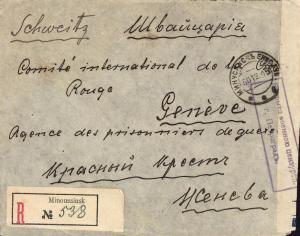 Schweitz Швайцарія
Comité international de la
Rouge
Genève
Agence des prisonniers de guerre
Красный крестъ
Женева
Minoussinsk
R № 538